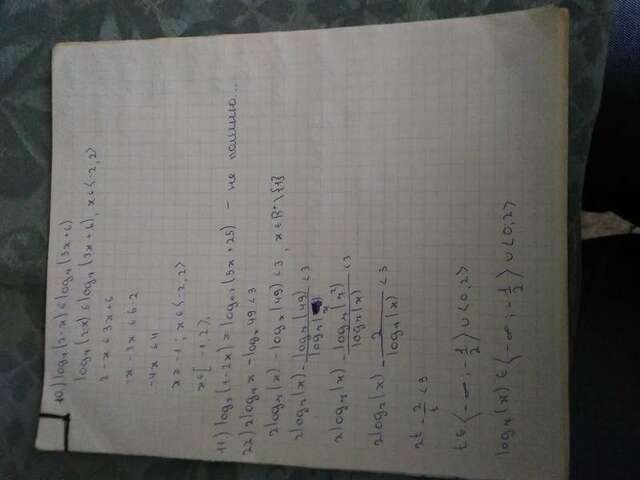 10) log₇(2-x) ≤ log₇(3x+6)
log₇(2-x) ≤ log₇(3x+6), x∈⟨-2, 2⟩
2-x ≤ 3x+6
-x-3x ≤ 6-2
-4x ≤ 4
x ≥ -1; x∈⟨-2, 2⟩
x∈[-1, 2⟩,
(1-2x) = (5x+25) - не помню...
22) 2log₇x - logₓ49 < 3
2log₇(x) - logₓ(49) < 3, x∈R⁺\{1}
2log₇(x) - log₇(49)/log₇(x) < 3
2log₇(x) - log₇(7²)/log₇(x) < 3
2log₇(x) - 2/log₇(x) < 3
2t - 2/t < 3
t∈⟨-∞; -1/2⟩∪⟨0, 2⟩
log₇(x)∈⟨-∞; -1/2⟩∪⟨0; 2⟩